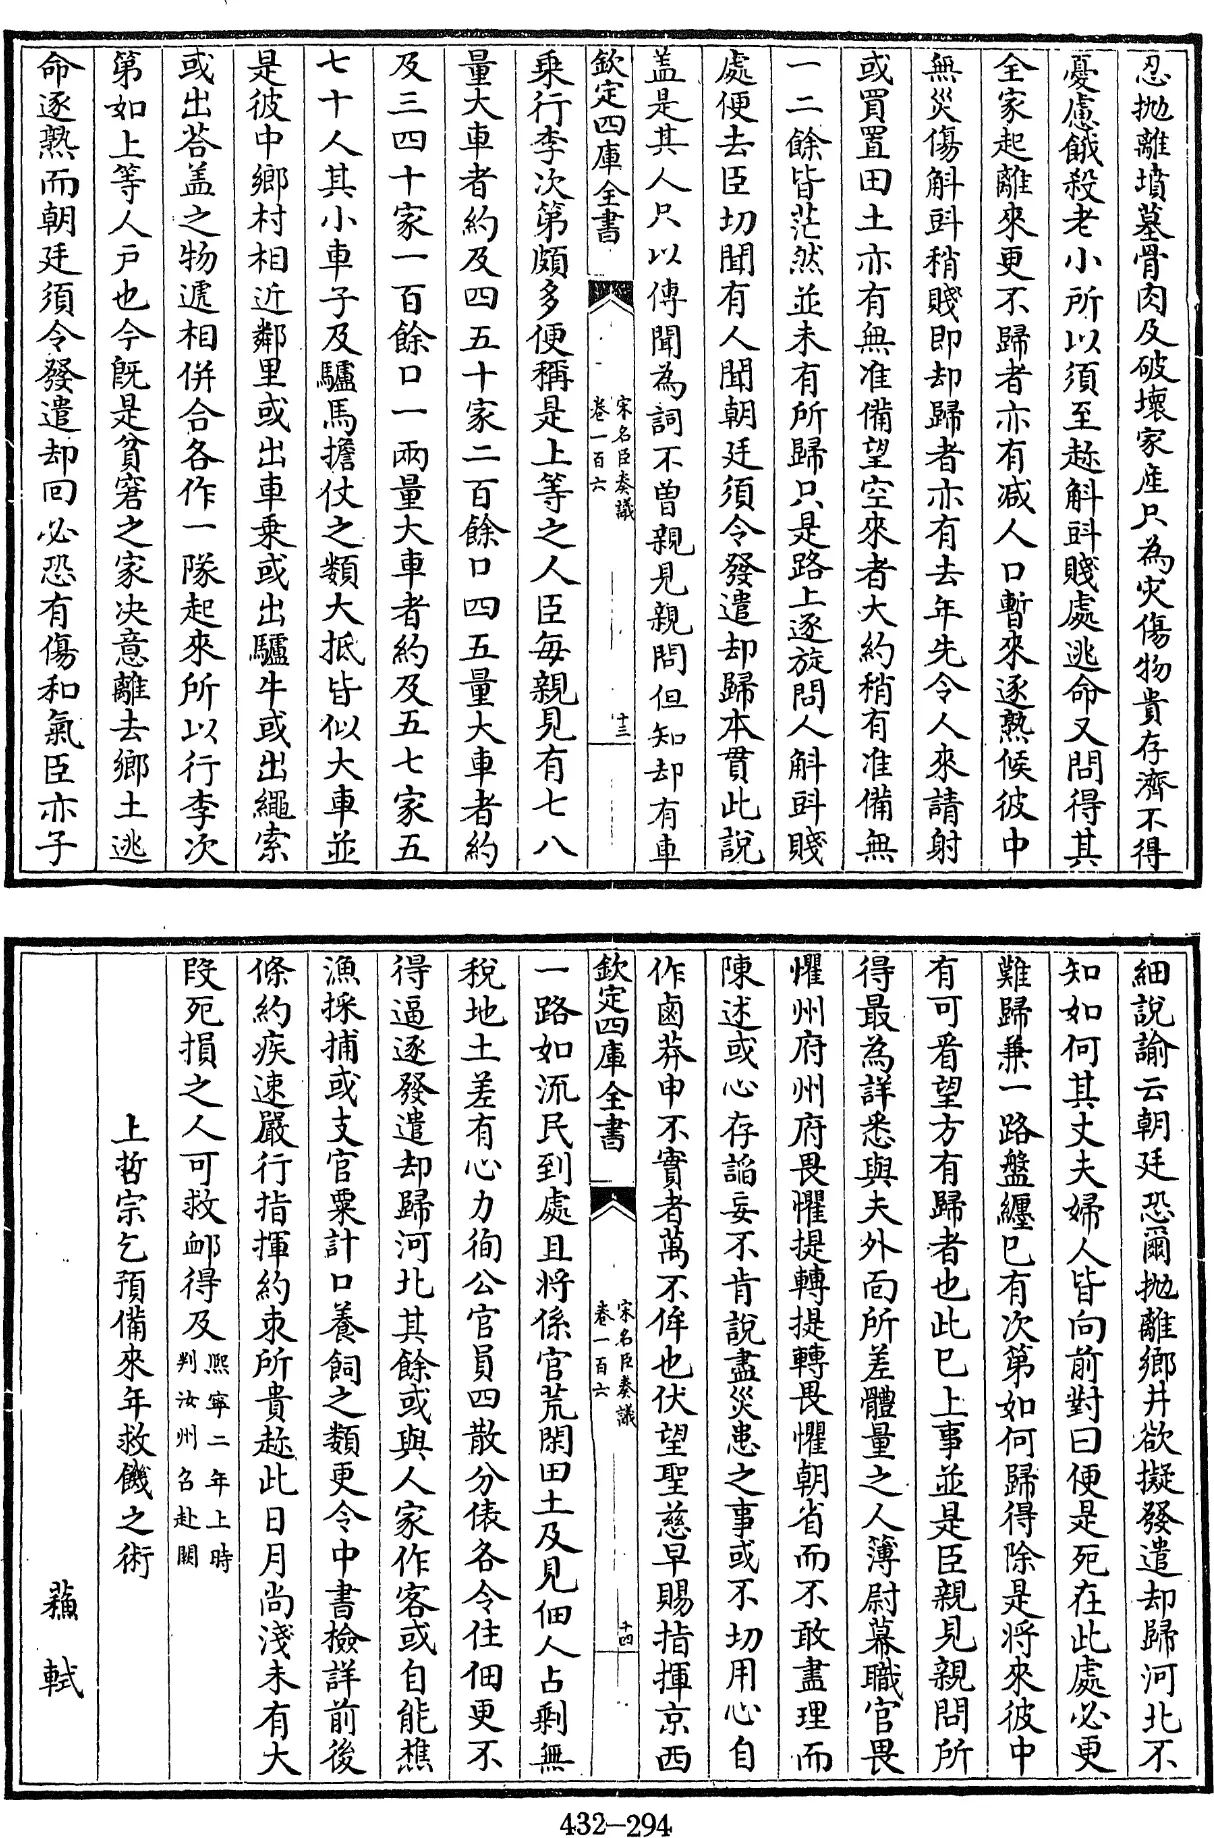 忍抛離墳墓骨肉及破壞家産只為灾傷物貴存濟不得
憂慮餓殺老小所以須至趂斛㪷賤處逃命又問得其
全家起離來更不歸者亦有减人口暫來逐熟候彼中
無災傷斛㪷稍賤即却歸者亦有去年先令人來請射
或買置田土亦有無准備望空來者大約稍有准備無
一二餘皆茫然並未有所歸只是路上逐旋問人斛㪷賤
處便去臣切聞有人聞朝廷須令發遣却歸本貫此說
盖是其人只以傳聞為詞不曾親見親問但知却有車
欽定四庫全書
宋名臣奏議
卷一百六
十三
乗行李次第頗多便稱是上等之人臣每親見有七八
量大車者約及四五十家二百餘口四五量大車者約
及三四十家一百餘口一兩量大車者約及五七家五
七十人其小車子及驢馬擔仗之類大抵皆似大車並
是彼中鄉村相近鄰里或出車乗或出驢牛或出繩索
或出荅盖之物遞相併合各作一隊起來所以行李次
第如上等人戸也今旣是貧窘之家决意離去鄉土逃
命逐熟而朝廷須令發遣却回必恐有傷和氣臣亦子
細說諭云朝廷恐爾抛離鄉井欲擬發遣却歸河北不
知如何其丈夫婦人皆向前對曰便是死在此處必更
難歸兼一路盤纒已有次第如何歸得除是將來彼中
有可看望方有歸者也此已上事並是臣親見親問所
得最為詳悉與夫外面所差體量之人薄尉幕職官畏
懼州府州府畏懼提轉提轉畏懼朝省而不敢盡理而
陳述或心存諂妄不肯說盡災患之事或不切用心自
作鹵莽申不實者萬不侔也伏望聖慈早賜指揮京西
欽定四庫全書
宋名臣奏議
卷一百六
十四
一路如流民到處且將係官荒閑田土及見佃人占剩無
稅地土差有心力徇公官員四散分俵各令住佃更不
得逼逐發遣却歸河北其餘或與人家作客或自能樵
漁採捕或支官粟計口養飼之類更令中書檢詳前後
條約疾速嚴行指揮約束所貴趂此日月尚淺未有大
段死損之人可救䘏得及熙寧二年上時
判汝州召赴闕
上哲宗乞預備來年救饑之術
蘓軾
432-294